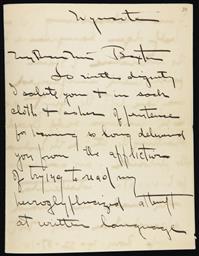 My Dear Miss Baxter
In sinless dignity
I salute you & in sack
cloth & ashes of penitence
for having so long delivered
you from the affliction
of trying to read my
hieroglyphicized attempt
at written language